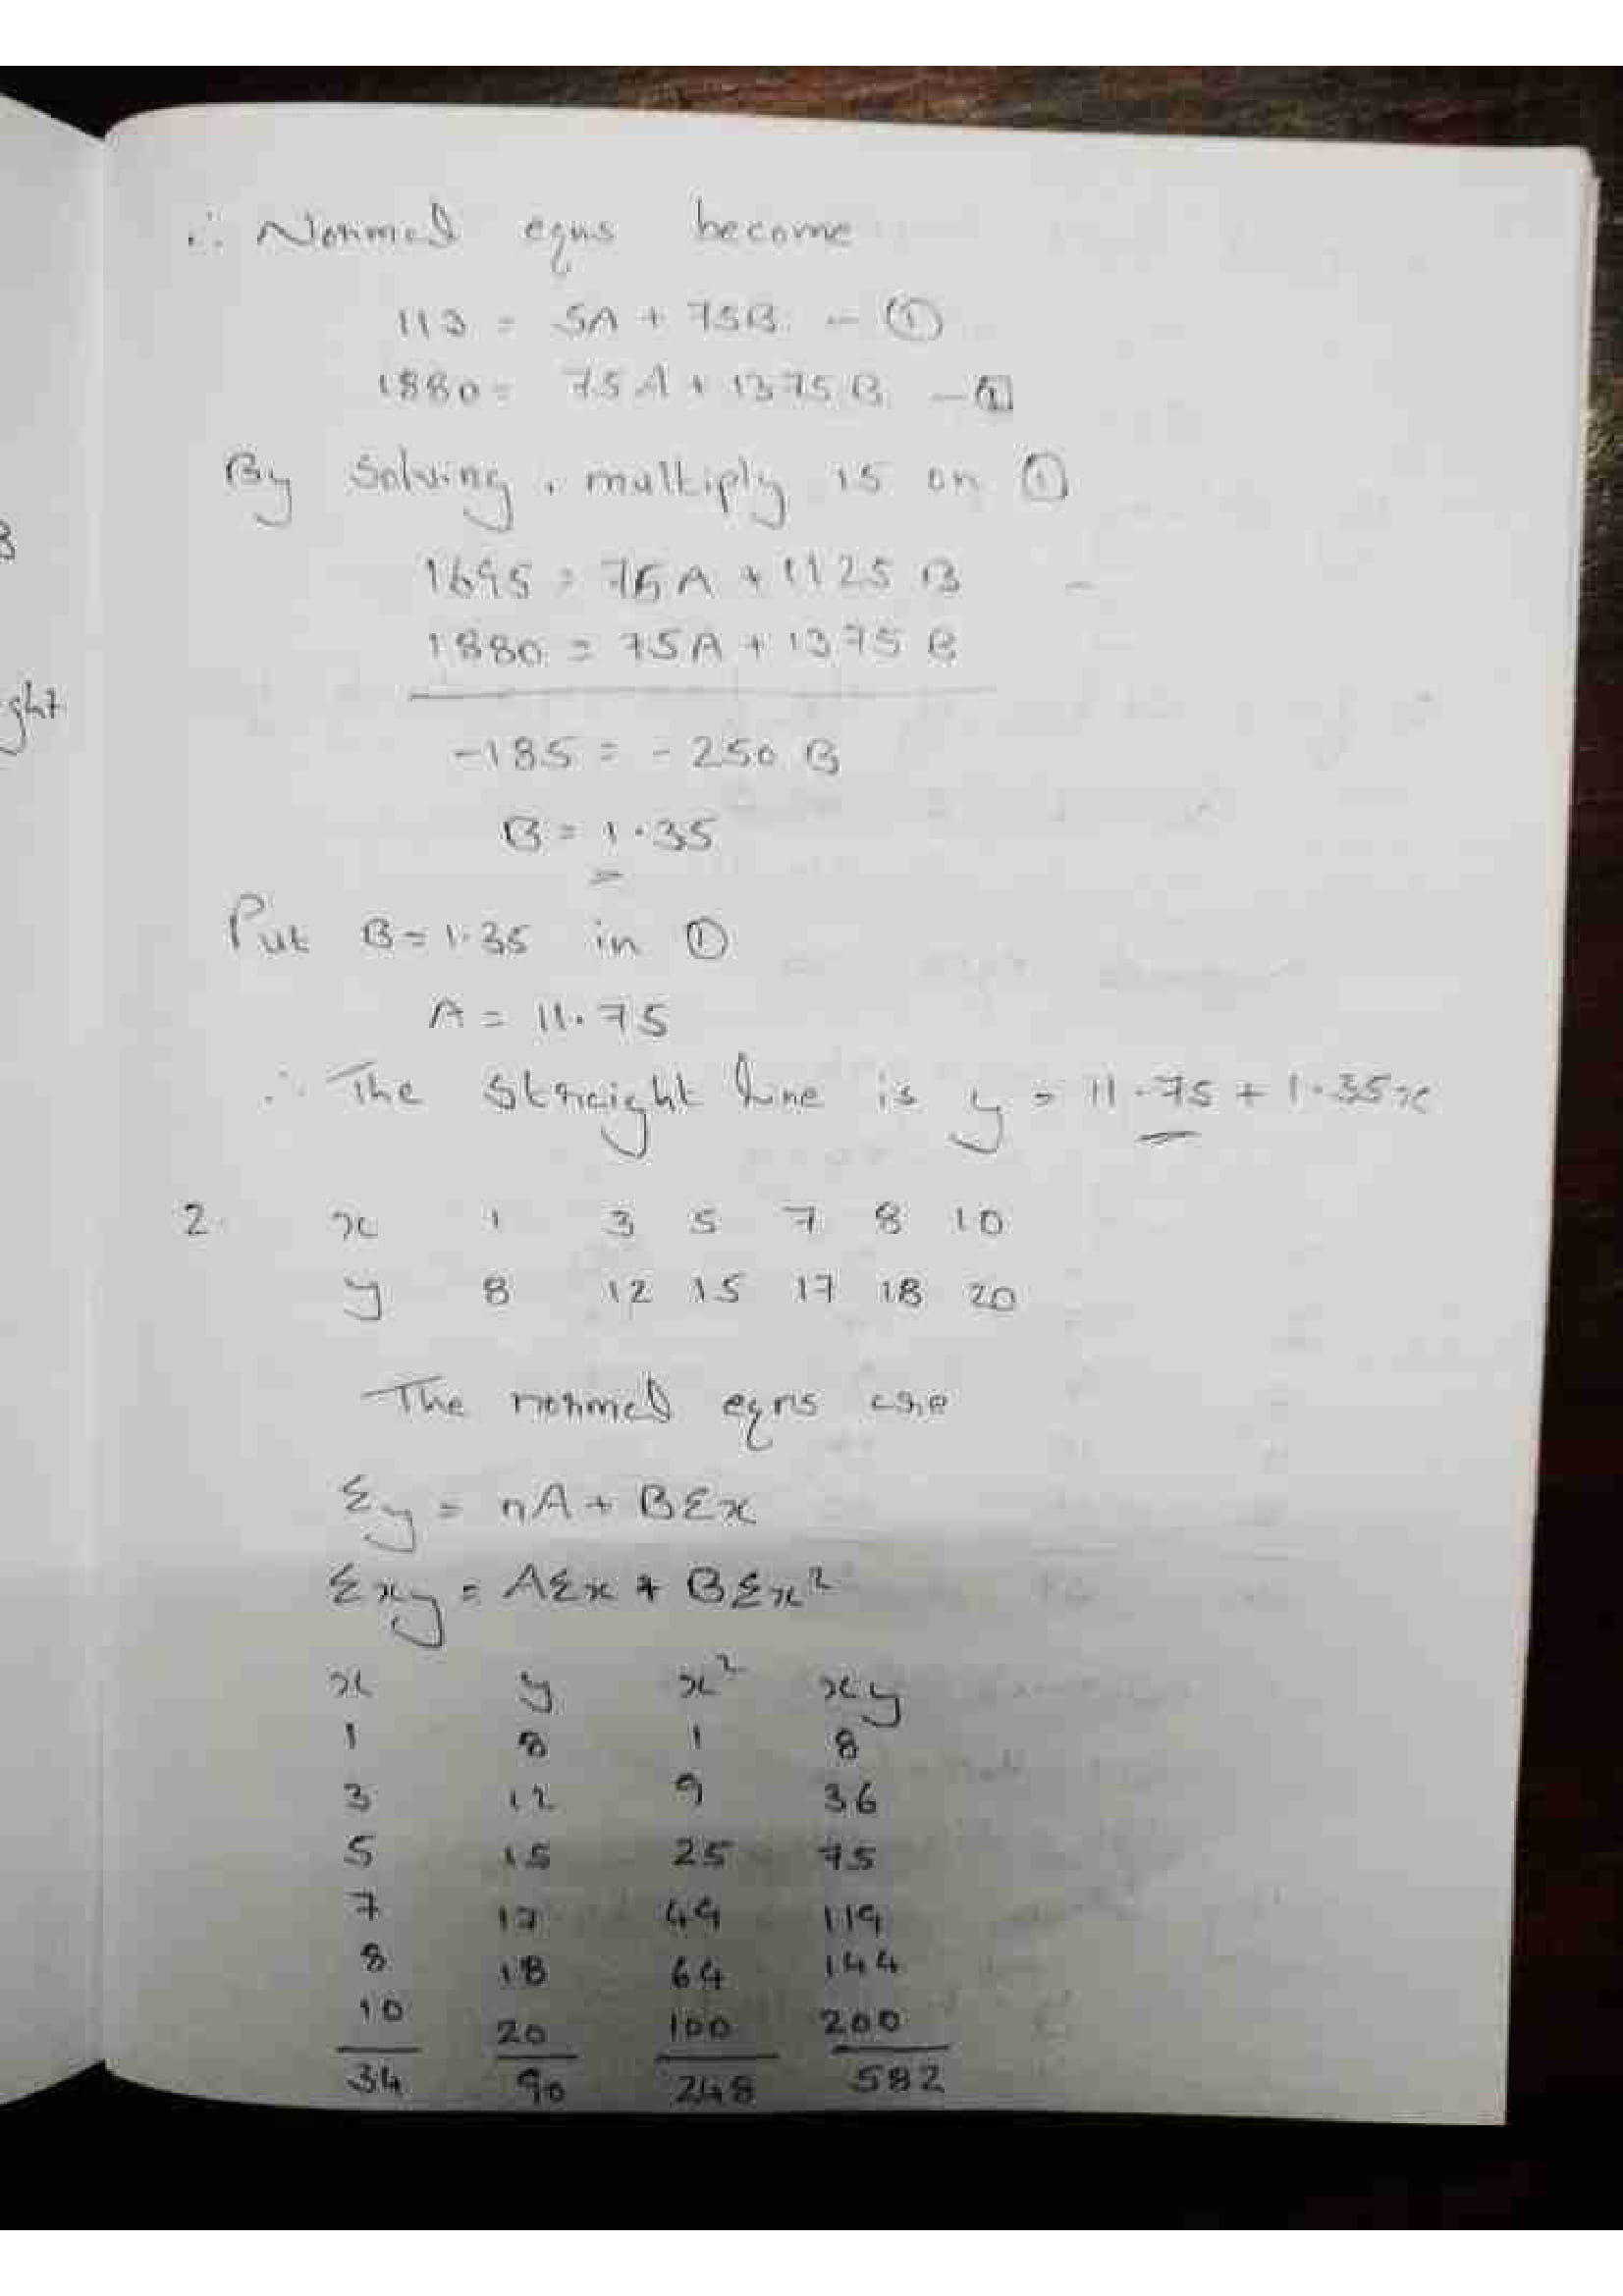 ∴ Normal eqns become
113 = 5A + 75B — ①
1880 = 75A + 1375B — ②
By solving, multiply 15 on ①
1695 = 75A + 1125 B
1880 = 75A + 1375 B
-185 = -250 B
B = 1.35
Put B = 1.35 in ①
A = 11.75
∴ The straight line is y = 11.75 + 1.35x
2. x 1 3 5 7 8 10
y 8 12 15 17 18 20
The normal eqns are
Σy = nA + BΣx
Σxy = AΣx + BΣx²
x y x² xy
1 8 1 8
3 12 9 36
5 15 25 75
7 17 49 119
8 18 64 144
10 20 100 200
34 90 248 582
ght